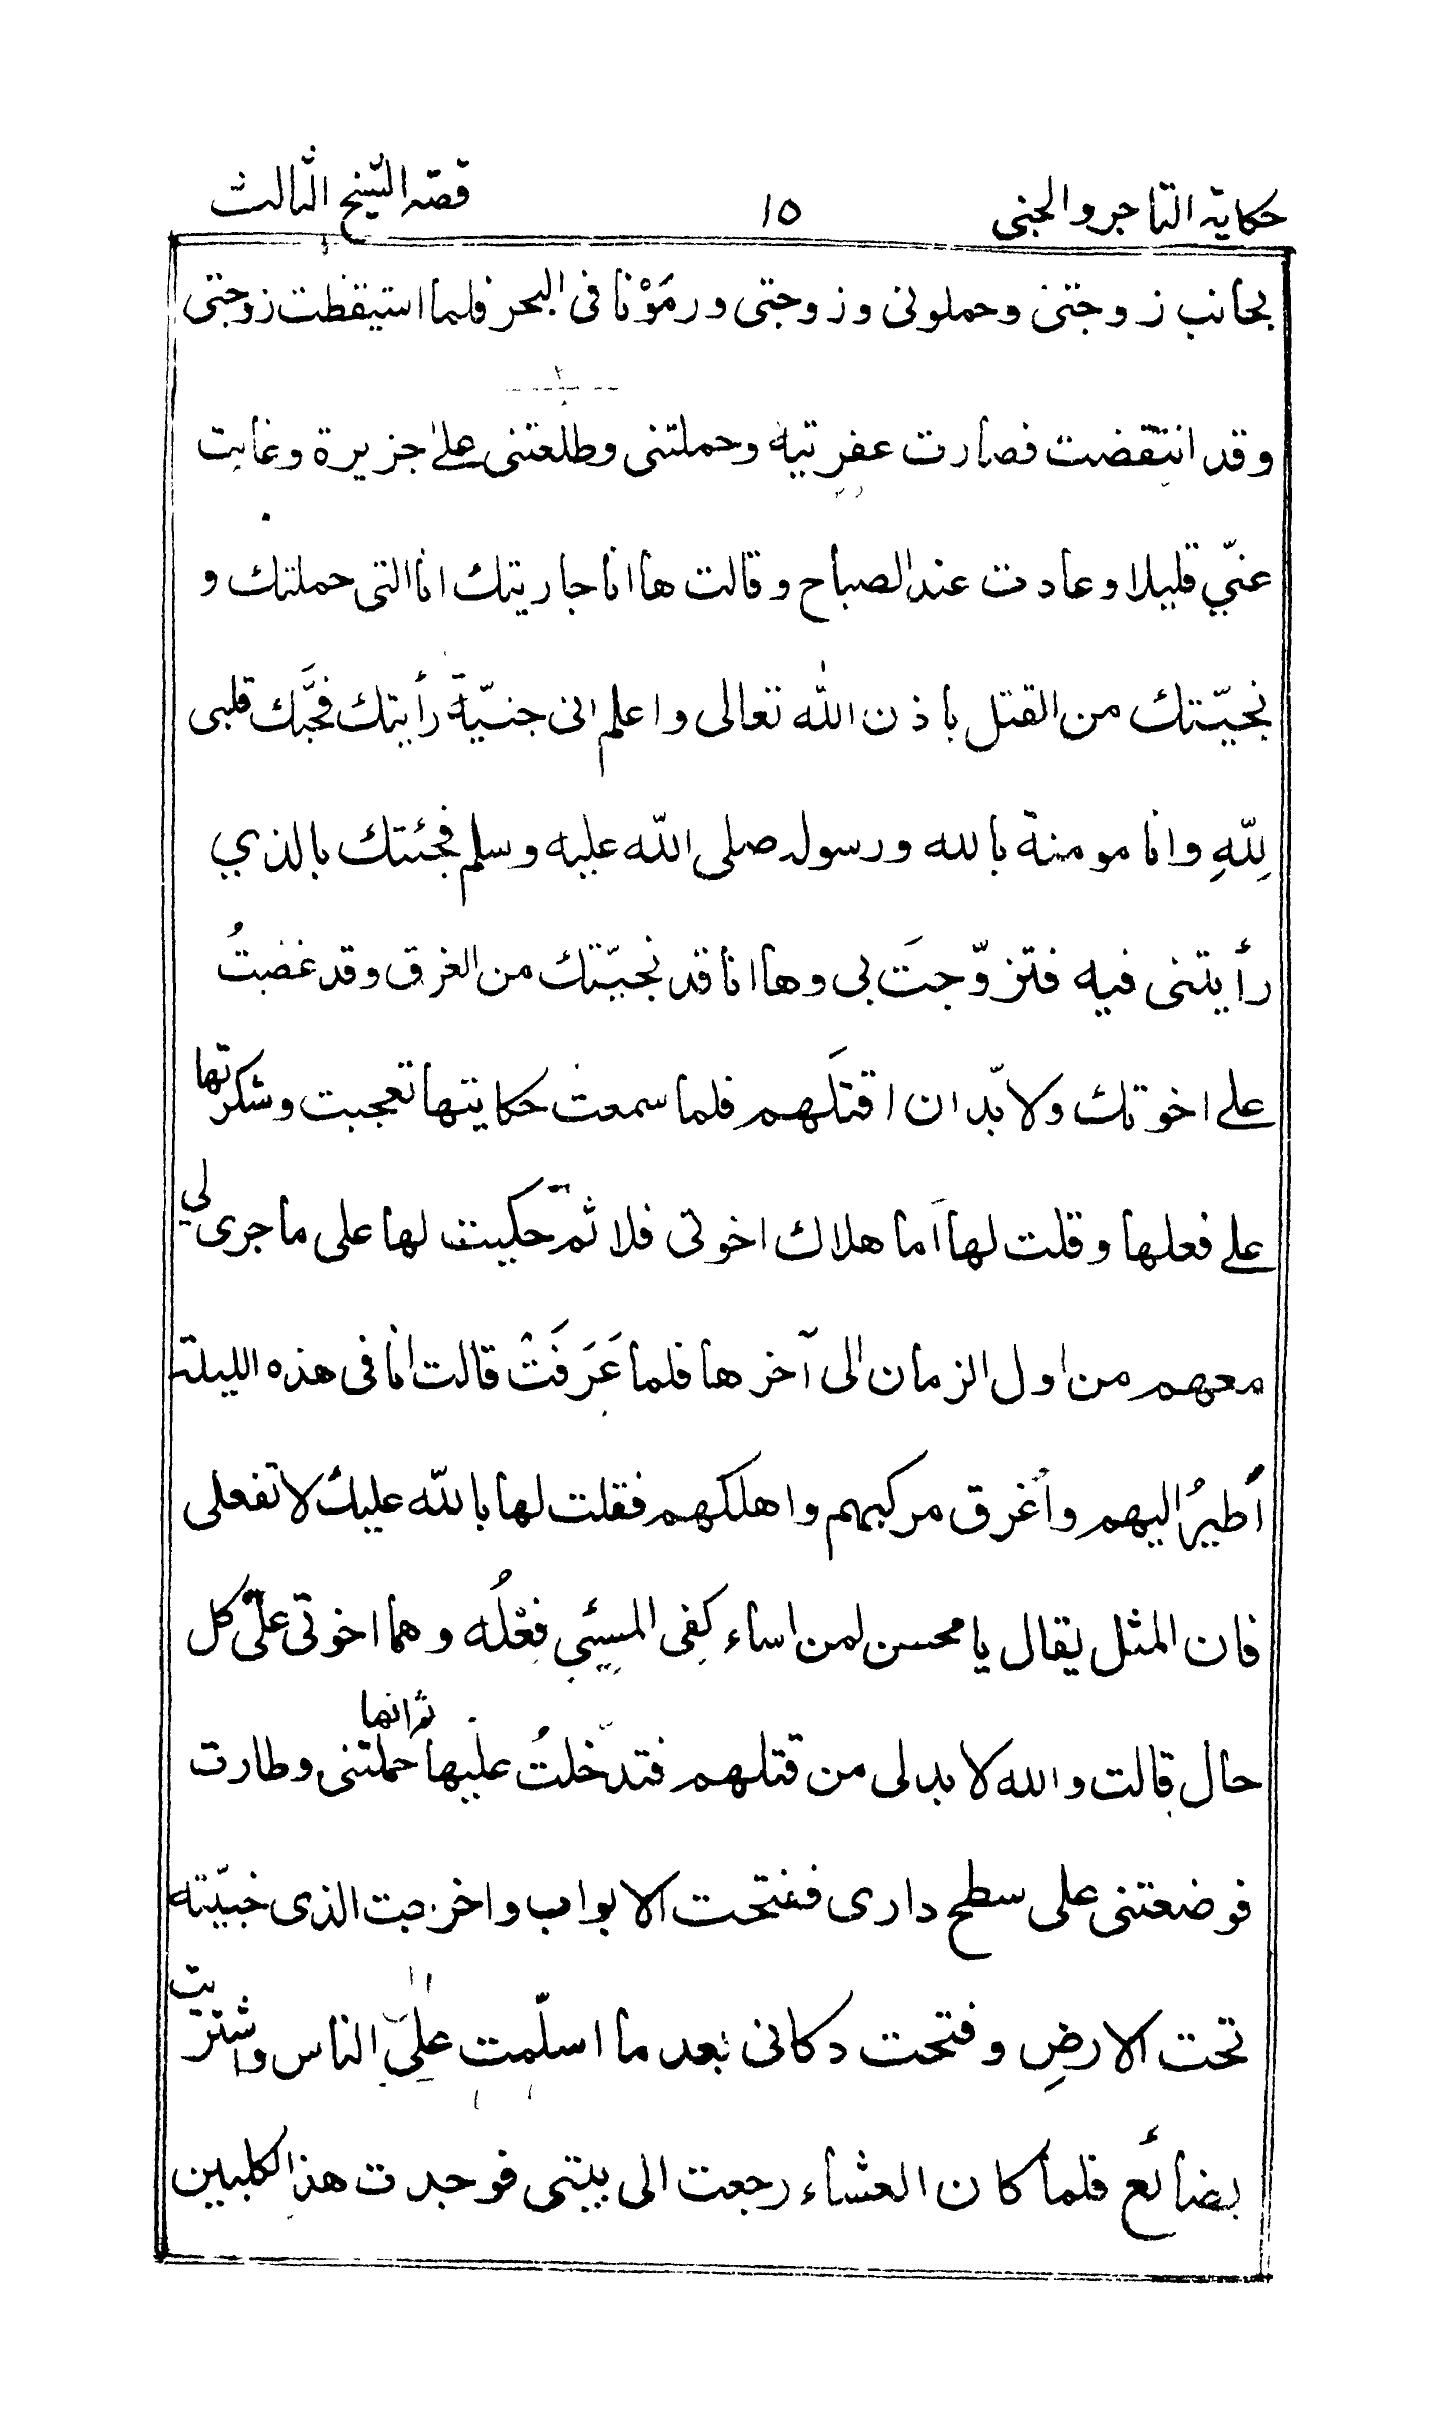 حكاية التاجر والجنى ١٥ قصة الشيخ الثالث
بجانب زوجتى وحملونى وزوجتى ورمَوْنا فى البحر فلما استيقظت زوجتى
وقد انتقضت فصارت عفريتية وحملتنى وطلعتنى على جزيرة وغابت
عنّي قليلا وعادت عند الصباح وقالت ها انا جاريتك انا التى حملتك و
نجيّتك من القتل باذن الله تعالى واعلم انى جنيّة رأيتك فحبَّك قلبى
لِلّهِ وانا مومنة بالله ورسوله صلى الله عليه وسلم فجئتك بالذي
رأيتنى فيه فتزوّجتَ بى وها انا قد نجيّتك من الغرق وقد غضبتُ
على اخوتك ولا بّد ان اقتلَهم فلما سمعت حكايتها تعجبت وشكرتها
على فعلها وقلت لها اَما هلاك اخوتى فلا ثم حكيت لها على ما جرى لي
معهم من اول الزمان الى آخرها فلما عَرَفَتْ قالت انا فى هذه الليلة
أطيرُ اليهم وأغرق مركبهم واهلكهم فقلت لها بالله عليك لا تفعلى
فان المثل يقال يا محسن لمن اساء كفِى المسيئي فِعْلُه وهما اخوتى علىّ كل
حال قالت والله لا بد لى من قتلهم فتدخّلتُ عليها ثم انها حملتنى وطارت
فوضعتنى على سطح دارى ففتحت الابواب واخرجت الذى خبيّته
تحت الارضِ وفتحت دكانى بعد ما اسلّمت على الناس واشتريت
بضائع فلما كان العشاء رجعت الى بيتى فوجدت هذا الكلبين